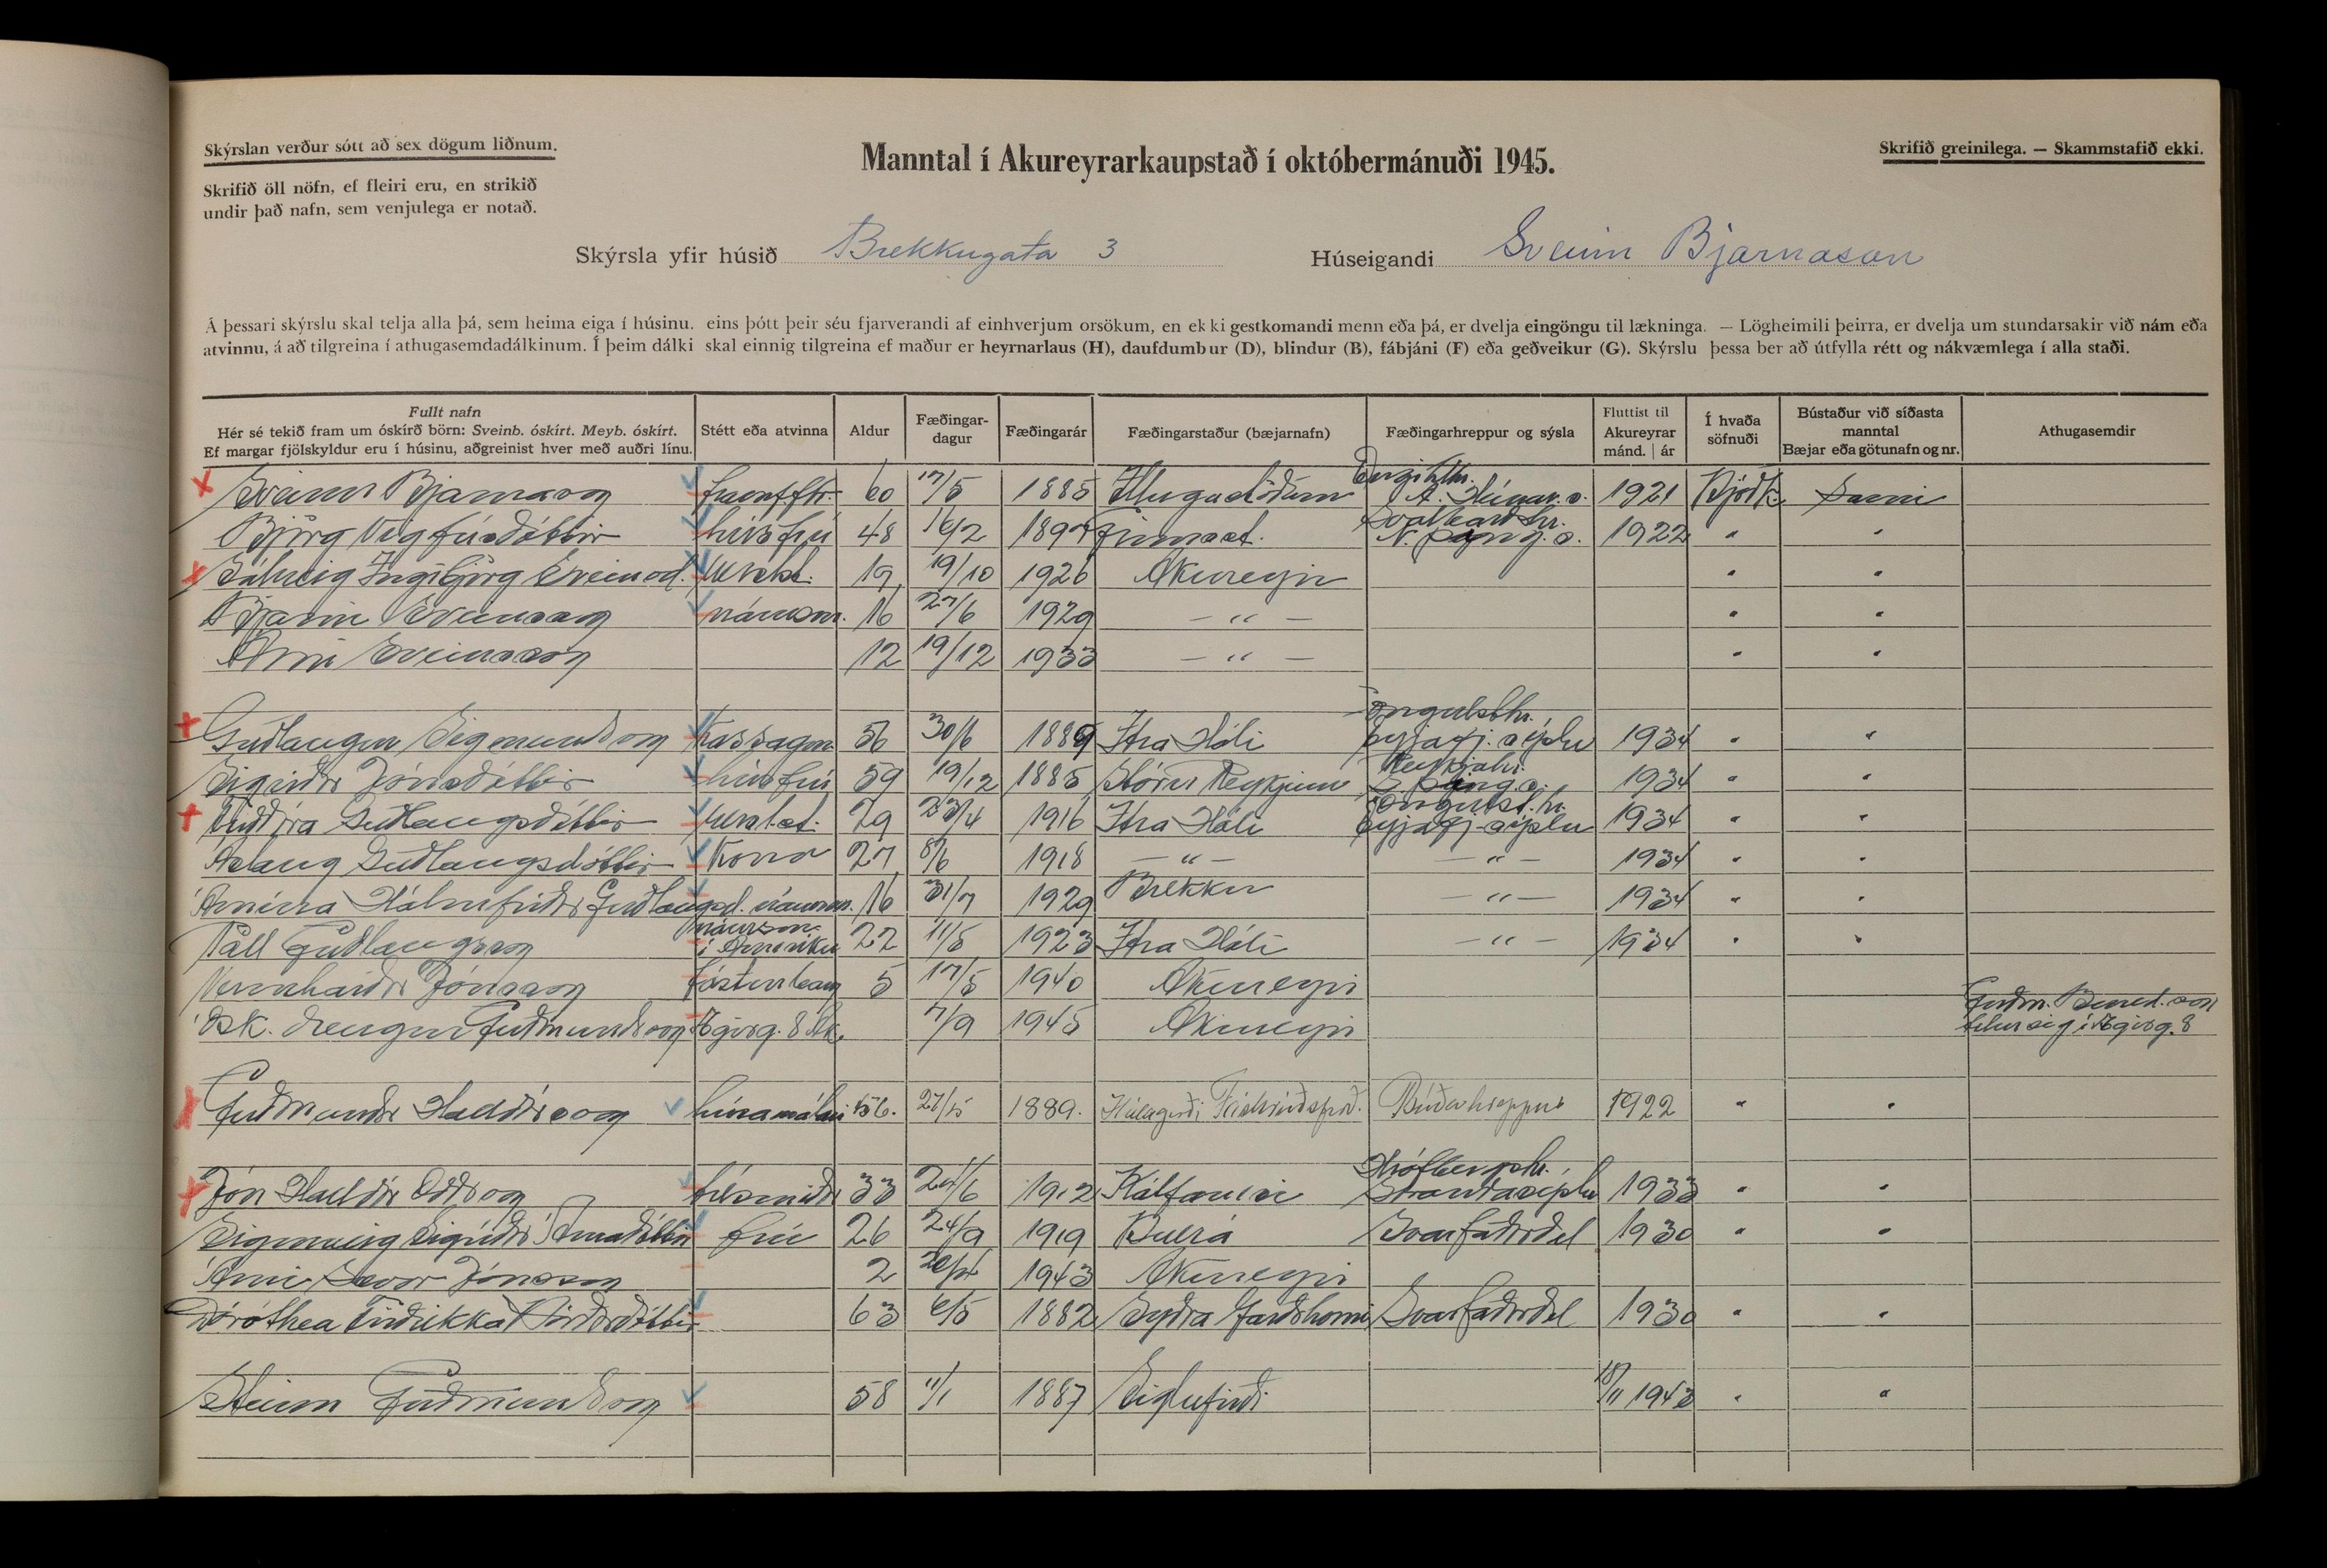 Skýrslan verður sótt að sex dögum liðnum.
Skrifið öll nöfn, ef fleiri eru, en strikið
undir það nafn, sem venjulega er notað.
Manntal í Akureyrarkaupstað í októbermánuði 1945.
Skrifið greinilega. — Skammstafið ekki.
Skýrsla yfir húsið Brekkugata 3 Húseigandi Sveinn Bjarnason
Á þessari skýrslu skal telja alla þá, sem heima eiga í húsinu. eins þótt þeir séu fjarverandi af einhverjum orsökum, en ekki gestkomandi menn eða þá, er dvelja eingöngu til lækninga. — Lögheimili þeirra, er dvelja um stundarsakir við nám eða
atvinnu, á að tilgreina í athugasemdadálkinum. Í þeim dálki skal einnig tilgreina ef maður er heyrnarlaus (H), daufdumbur (D), blindur (B), fábjáni (F) eða geðveikur (G). Skýrslu þessa ber að útfylla rétt og nákvæmlega í alla staði.
Fullt nafn
Hér sé tekið fram um óskírð börn: Sveinb. óskírt. Meyb. óskírt.
Ef margar fjölskyldur eru í húsinu, aðgreinist hver með auðri línu.
Stétt eða atvinna
Aldur
Fæðingar-
dagur
Fæðingarár
Fæðingarstaður (bæjarnafn)
Fæðingarhreppur og sýsla
Fluttist til
Akureyrar
mánd. | ár
Í hvaða
söfnuði
Bústaður við síðasta
manntal
Bæjar eða götunafn og nr.
Athugasemdir
Sveinn Bjarnason 60 17/5 1885 Illugastöðum A. Húnav.s. 1921 Þjóðk. Sami
Björg Vigfúsdóttir húsfrú 48 16/2 1897 Svalbarðhr. N. Þing.s. 1922 " "
Sólveig Ingibjörg Sveinsd. 19 19/10 1926 Akureyri " "
Bjarni Sveinsson námsm. 16 27/6 1929 — " — " "
Árni Sveinsson 12 19/12 1933 — " — " "
Guðlaugur Sigmundsson 56 30/6 1889 Ytra Hóli Öngulsthr. Eyjafj. sýslu 1934 " "
Sigríður Jónsdóttir húsfrú 59 19/12 1885 Stóru Reykjum Reykjahr. S. Þing.s. 1934 " "
Guðlaugsdóttir 29 23/4 1916 Ytra Hóli Öngulst.hr. Eyjafj. sýslu 1934 " "
Áslaug Guðlaugsdóttir 27 8/6 1918 — " — — " — 1934 " "
Hólmfríður Guðlaugsd. námsm. 16 31/7 1929 Brekku — " — 1934 " "
Páll Guðlaugsson námsm. í Ameríku 22 11/5 1923 Ytra Hóli — " — 1934 " "
Vernharður Jónsson fósturbarn 5 17/5 1940 Akureyri
Ósk. drengur Guðmundsson Ægisg. 8 Ak. 7/9 1945 Akureyri Guðm. Bened.son
telur sig í Ægisg. 8
Guðmundur Halldórsson húsamálari 56. 27/5 1889. Fáskrúðsfirð. Búðahreppur 1922 " "
Jón Halldór Oddsson 33 24/6 1912 Kálfanesi Hrófbergshr. Strandasýslu 1933 " "
Sigurveig Sigríður Árnadóttir frú 26 24/9 1919 Þverá Svarfaðrdal 1930 " "
Árni Sævar Jónsson 2 1943 Akureyri
Dóróthea Friðrikka Þórðardóttir 63 6/5 1882 Syðra Garðshorni Svarfaðrdal 1930 " "
Steinn Guðmundsson 58 11/1 1887 Siglufirði 18/11 1943 " "